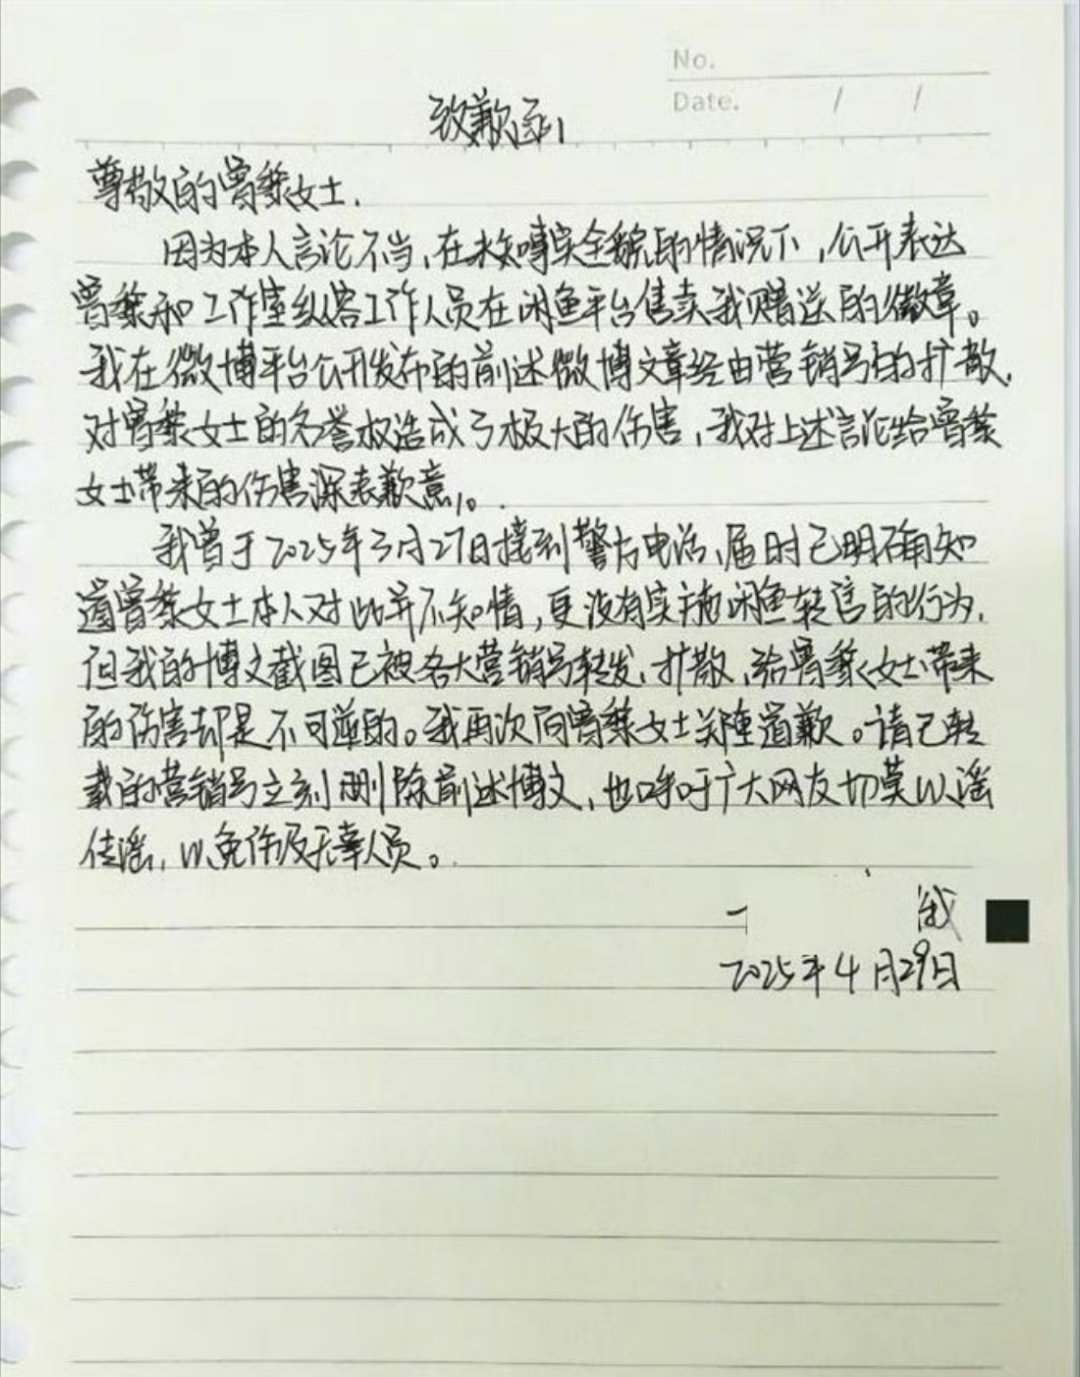 No.
Date. / /
致歉函
尊敬的曾黎女士.
因为本人言论不当,在未知事实全貌的情况下,公开表达
曾黎和工作室纵容工作人员在闲鱼平台售卖我赠送的徽章。
我在微博平台公开发布的前述微博文章经由营销号的扩散,
对曾黎女士的名誉权造成了极大的伤害,我对上述言论给曾黎
女士带来的伤害深表歉意。
我曾于2025年3月27日接到警方电话,届时已明确知
道曾黎女士本人对此并不知情,更没有实施闲鱼转售的行为,
但我的博文截图已被各大营销号转发、扩散,给曾黎女士带来
的伤害却是不可逆的。我再次向曾黎女士郑重道歉。请已转
载的营销号立刻删除前述博文,也呼吁广大网友切莫以谣
传谣,以免伤及无辜人员。
2025年4月29日